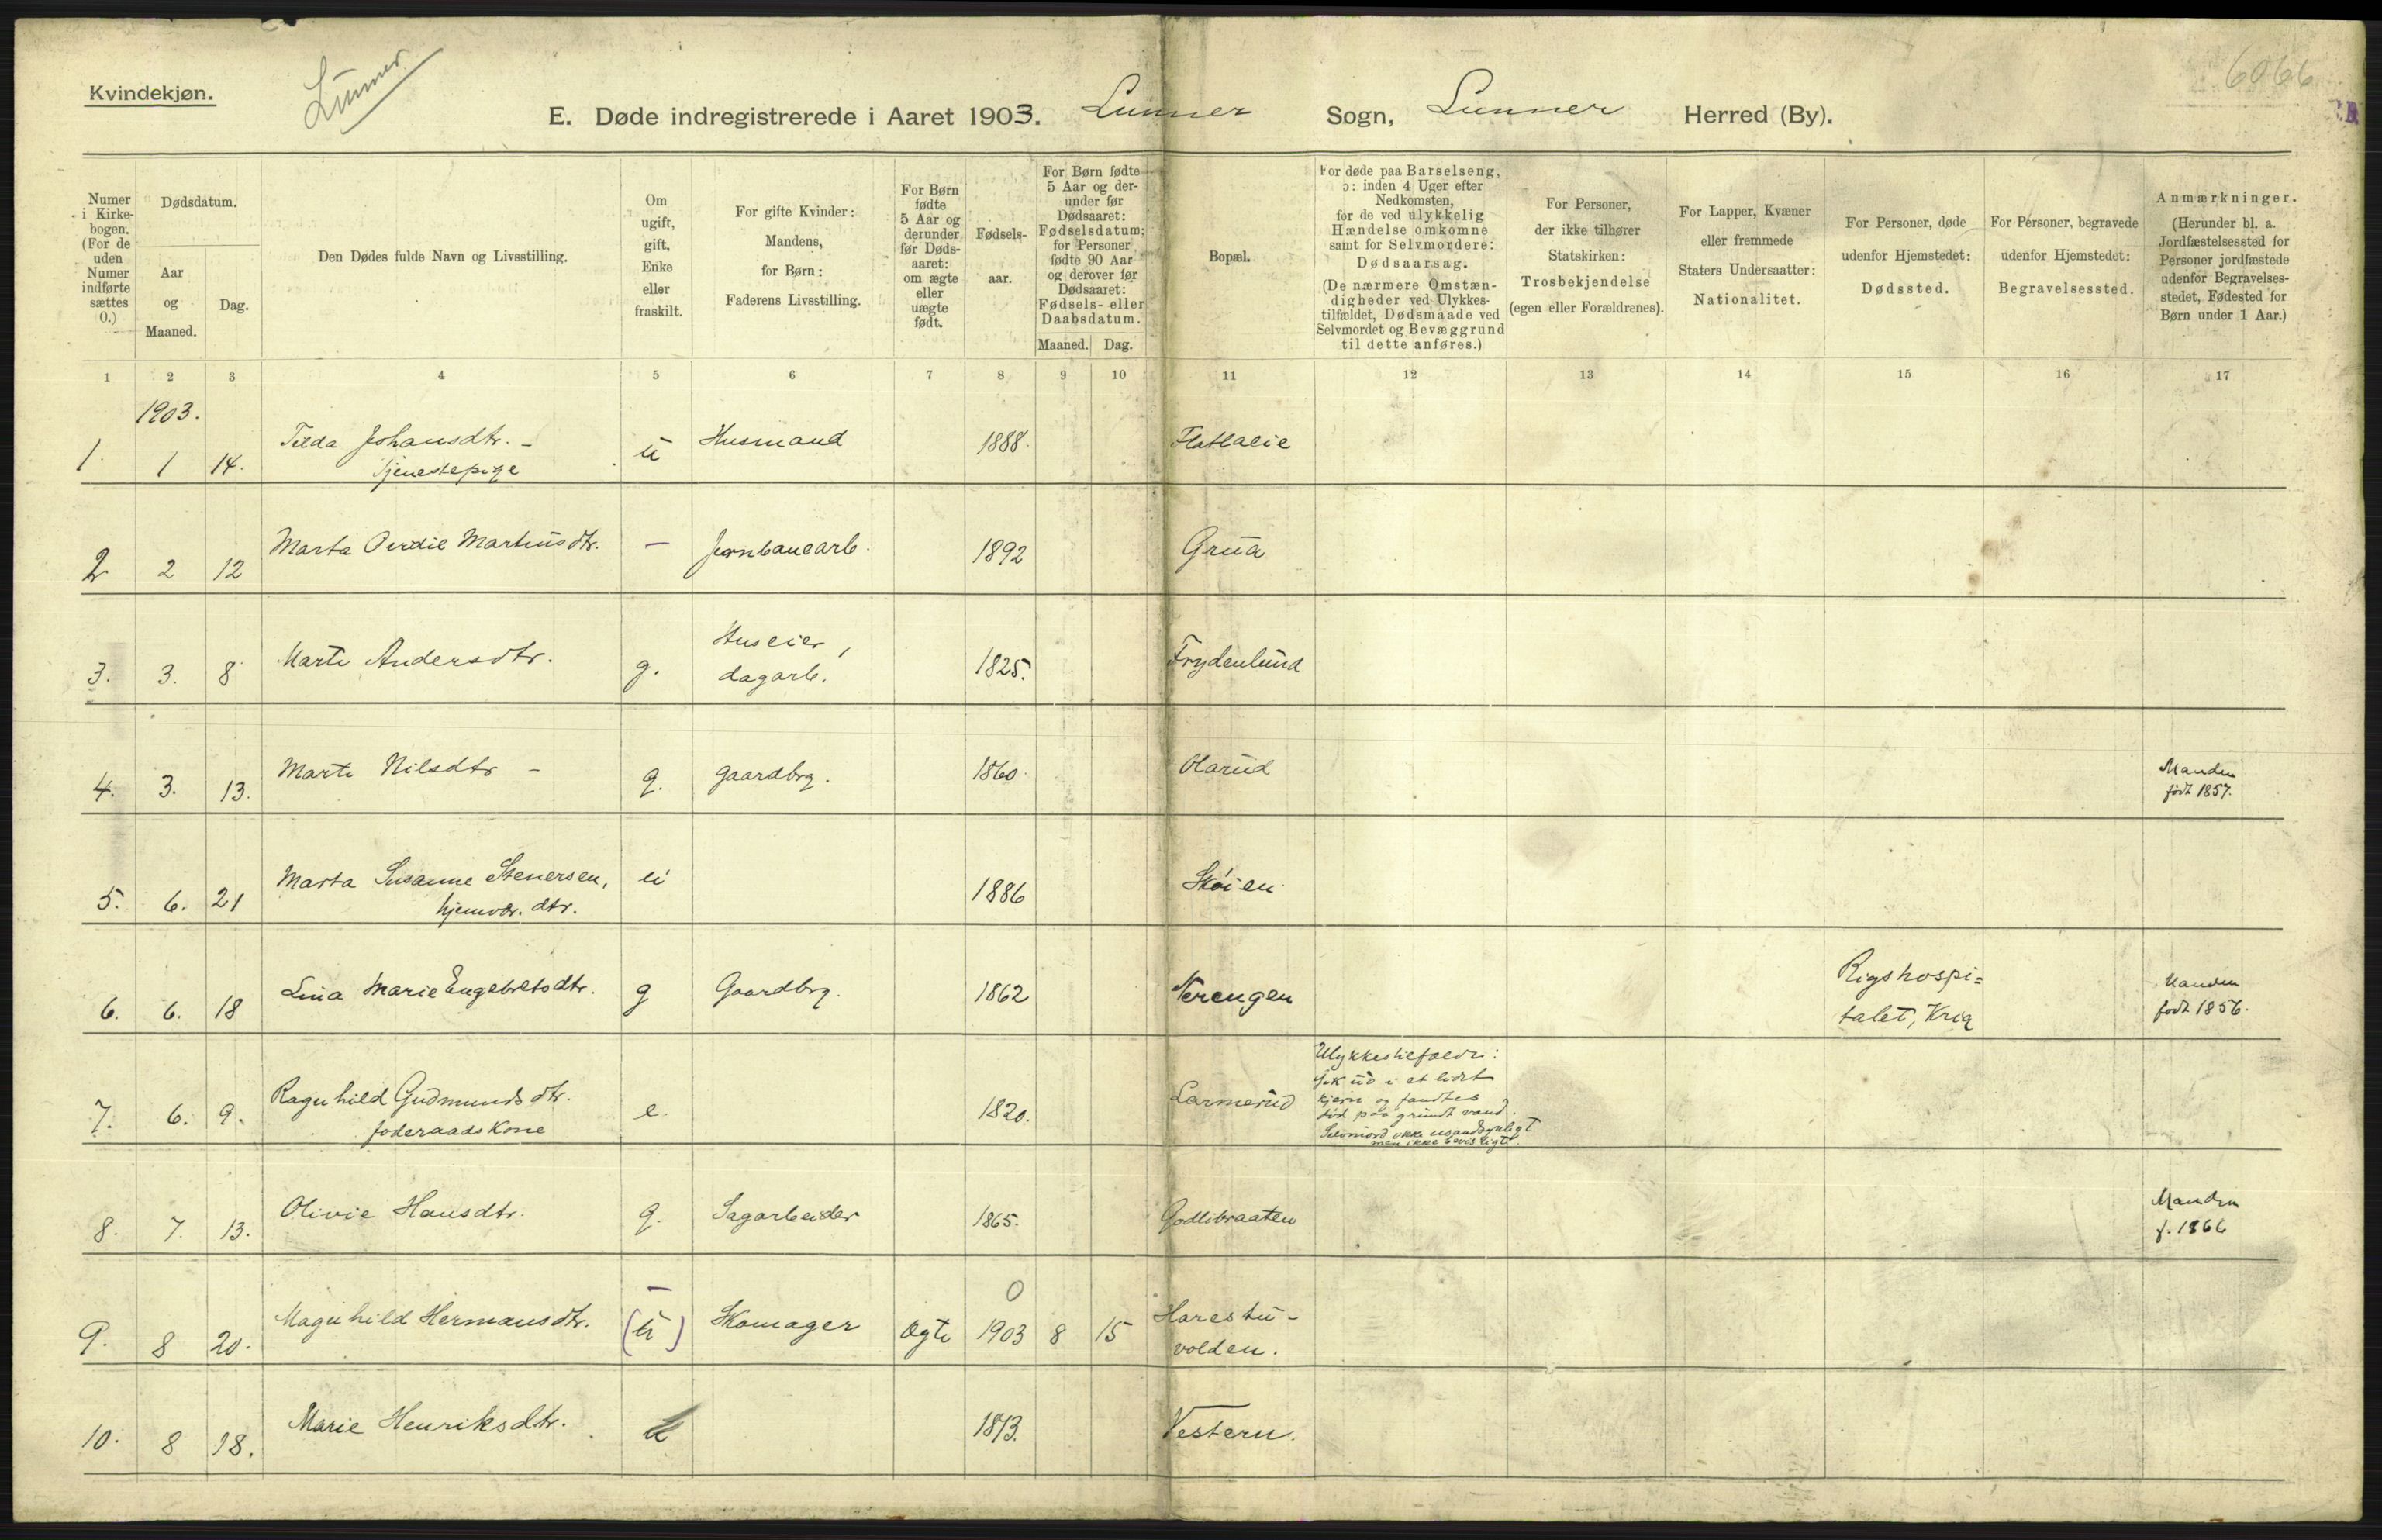 Kvindekjøn.
Lunner
6066
E. Døde indregistrerede i Aaret 1903. Lunner Sogn, Lunner Herred (By).
Numer
i Kirke-
bogen.
(For de
uden
Numer
indførte
sættes
0.)
Dødsdatum.
Aar
og
Maaned.
Dag.
Den Dødes fulde Navn og Livsstilling.
Om
ugift,
gift,
Enke
eller
fraskilt.
For gifte Kvinder:
Mandens,
for Børn:
Faderens Livsstilling.
For Børn
fødte
5 Aar og
derunder
før Døds-
aaret:
om ægte
eller
uægte
født.
Fødsels-
aar.
For Børn fødte
5 Aar og der-
under før
Dødsaaret:
Fødselsdatum;
for Personer
fødte 90 Aar
og derover før
Dødsaaret:
Fødsels- eller
Daabsdatum.
Maaned. Dag.
Bopæl.
For døde paa Barselseng,
ɔ: inden 4 Uger efter
Nedkomsten,
for de ved ulykkelig
Hændelse omkomne
samt for Selvmordere:
Dødsaarsag.
(De nærmere Omstæn-
digheder ved Ulykkes-
tilfældet, Dødsmaade ved
Selvmordet og Bevæggrund
til dette anføres.)
For Personer,
der ikke tilhører
Statskirken:
Trosbekjendelse
(egen eller Forældrenes).
For Lapper, Kvæner
eller fremmede
Staters Undersaatter:
Nationalitet.
For Personer, døde
udenfor Hjemstedet:
Dødssted.
For Personer, begravede
udenfor Hjemstedet:
Begravelsessted.
Anmærkninger.
(Herunder bl. a.
Jordfæstelsessted for
Personer jordfæstede
udenfor Begravelses-
stedet, Fødested for
Børn under 1 Aar.)
1 2 3 4 5 6 7 8 9 10 11 12 13 14 15 16 17
1903.
1. 1 14. Tilda Johansdtr. - u Husmand 1888. Flatlaeie
Tjenestepige
2 2 12 Marta Perdie Martinsdtr. — Jernbanearb. 1892 Grua
3. 3. 8 Marte Andersdtr. g. Huseier, 1825. Frydenlund
dagarb.
4. 3. 13. Marte Nilsdtr - g. gaardbrg. 1860. Olarud Manden
født 1857.
5. 6. 21 Marta Susanne Stenersen, u 1886 Skøien
hjemvær. dtr.
6. 6. 18 Lina Marie Engebretsdtr. g Gaardbrg. 1862 Nerengen Rigshospi= Manden
talet, Kria født 1856.
7. 6. 9. Ragnhild Gudmundsdtr. e. 1820. Larmerud
foderaadskone
Ulykkestilfælde:
Gik ud i et lidet
kjern og fandtes
død paa grundt vand.
Selvmord ikke usandsynligt
men ikke bevisligt.
8. 7. 13. Olivie Hansdtr. g. Sagarbeider 1865. Godlibraaten Manden
f. 1866
— 0
9. 8 20. Magnhild Hermansdtr. (u) Skomager Ægte 1903 8 15 Harestu-
volden.
10. 8 18. Marie Henriksdtr. u 1873. Vestern.